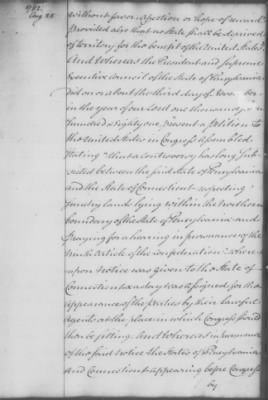 1782.
Aug 28
without favor affection or hope of reward
Provided also that no State shall be deprived
of territory for the benefit of the United States.
And Whereas the President and supreme
Executive council of the State of Pensylvania
did on or about the third day of Novem ber
in the year of our Lord one thousand
hundred & eighty one, present a Petition to
the United States in Congress assembled
stating "that a controversy has long sub
sisted between the said State of Pensylvania
and the State of Connecticut respecting
sundry lands lying within the northern
boundary of the State of Pensylvania and
praying for a hearing in pursuance of the
ninth Article of the confederation" where
upon notice was given to the State of
Connecticut & a day was assigned for the
appearance of the parties by their lawful
agents at the place in which Congress should
then be sitting. And Whereas in pursuance
of the said notice the states of Pensylvania
and Connecticut appearing before Congress
by